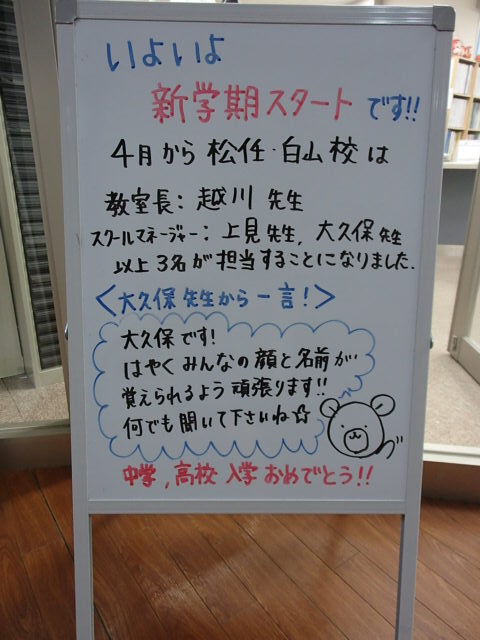 いよいよ
新学期スタートです!!
4月から 松任・白山校は
教室長: 越川 先生
スクールマネージャー: 上見先生, 大久保先生
以上3名が担当することになりました.
<大久保先生から一言!>
大久保です!
はやく みんなの顔と名前が
覚えられるよう 頑張ります!!
何でも聞いて下さいね☆
中学, 高校 入学 おめでとう!!